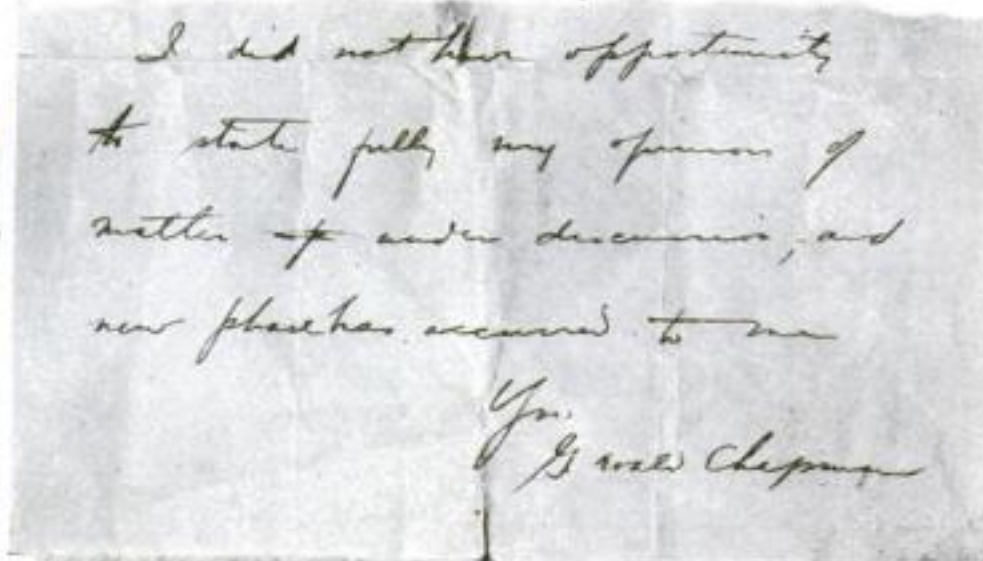 I did not have opportunity
to state fully my opinion of
matter up under discussion, and
new phase has occurred to me
Yrs.
Gerald Chapman